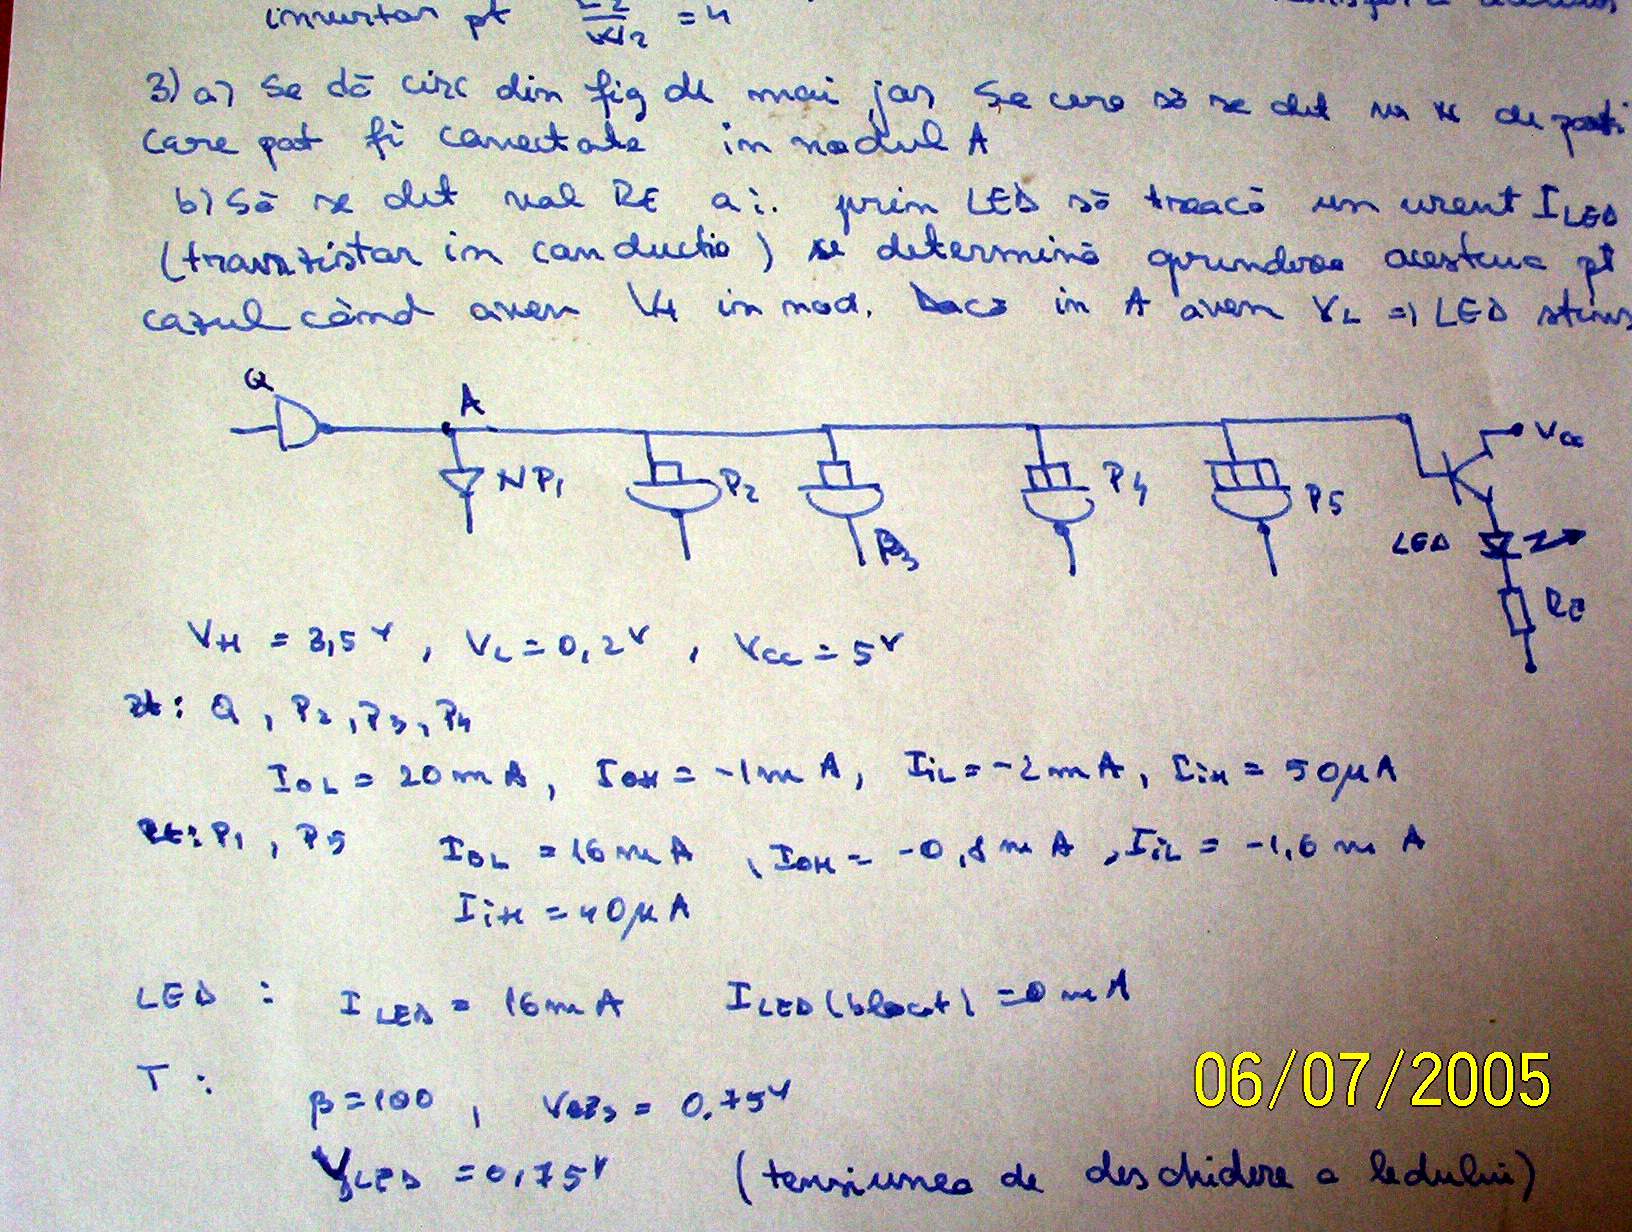 invertor pt = 4
3) a) Se dă circ din fig de mai jos Se cere să se det nr N de porti
care pot fi conectate in nodul A
b) Să se det val RE a i. prin LED să treacă un curent ILED
(tranzistor in conductie) se determină aprinderea acestuia pt
cazul când avem VH in nod. Dacă in A avem VL => LED stins
Q
A
VCC
N P1
P2
P3
P4
P5
LED
RE
VH = 3,5V , VL = 0,2V , VCC = 5V
Pt: Q , P2 , P3 , P4
IOL = 20mA , IOH = -1mA , IiL = -2mA , IiH = 50μA
Pt: P1 , P5 IOL = 16mA , IOH = -0,8mA , IiL = -1,6mA
IiH = 40μA
LED : ILED = 16mA ILED(blocat) = 0mA
T :
β = 100 , = 0.75V
= 0,75V (tensiunea de deschidere a ledului)
06/07/2005